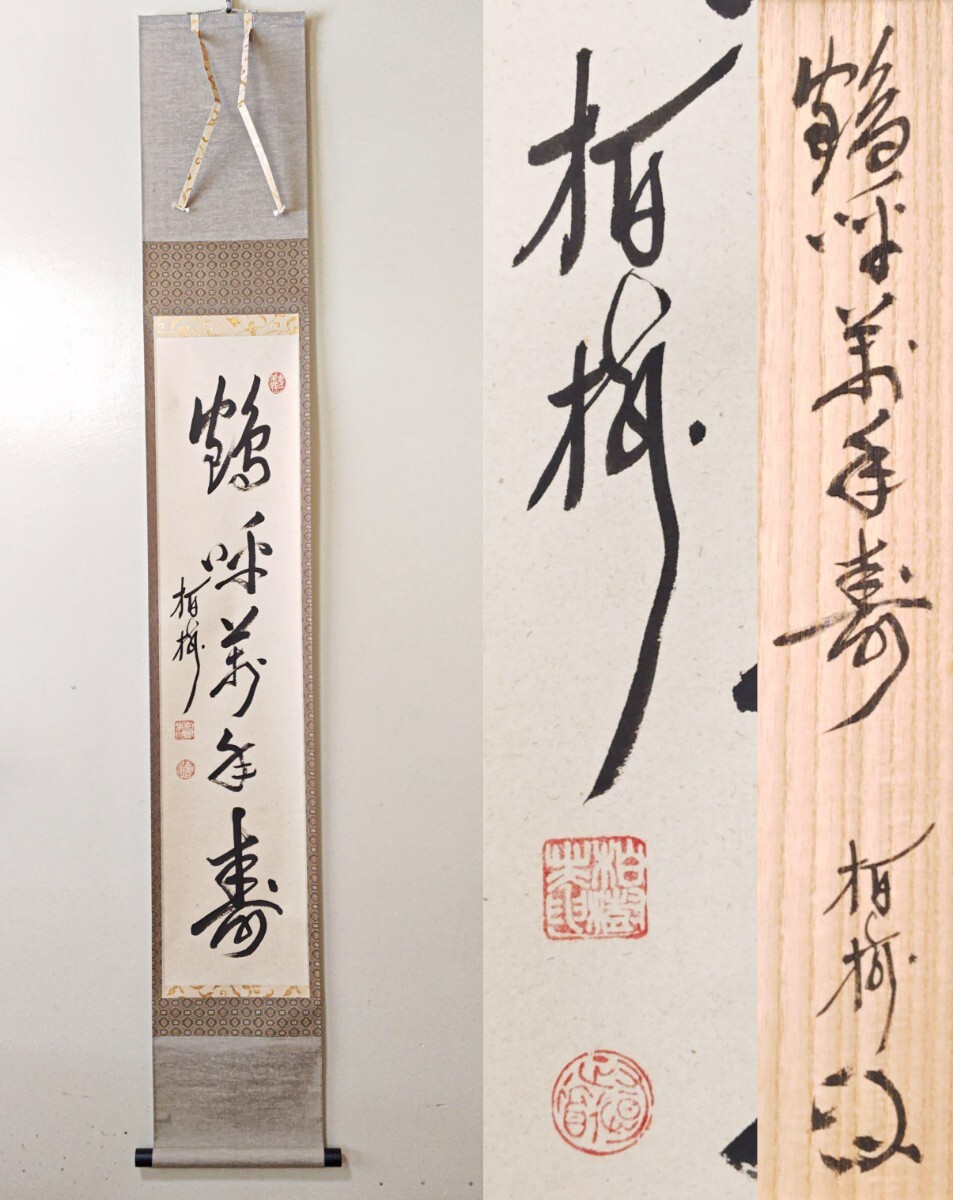 鶴呼萬年寿
柏樹
柏樹
鶴呼萬年寿
柏樹